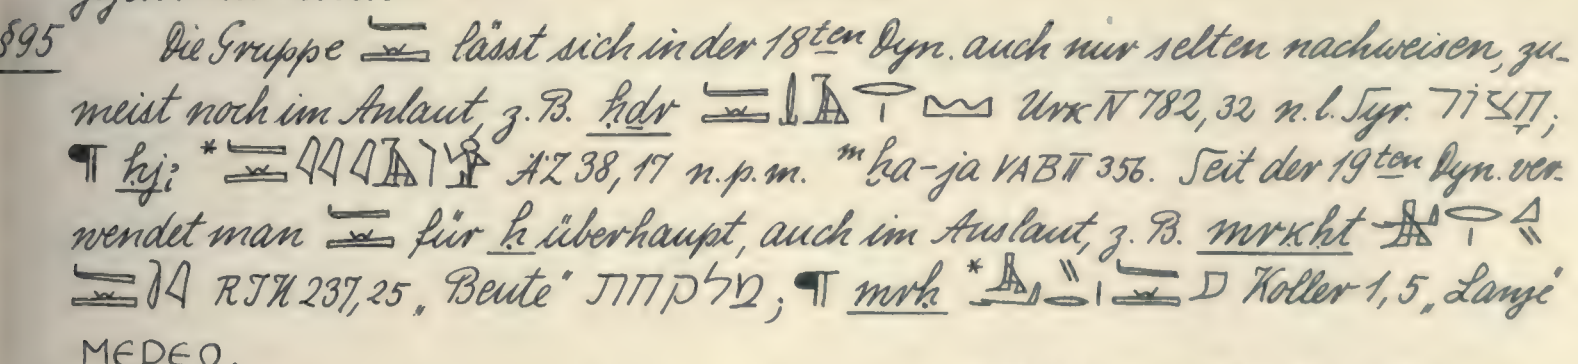 §95 Die Gruppe lässt sich in der 18ten Dyn. auch nur selten nachweisen, zu-
meist noch im Anlaut, z. B. ḥḏr Urk IV 782, 32 n. l. Syr. חָצוֹר;
¶ ḫj: * ÄZ 38, 17 n. p. m. ᵐḫa-ja VAB II 356. Seit der 19ten Dyn. ver-
wendet man für ḥ überhaupt, auch im Auslaut, z. B. mrkḥt
237,25 „Beute“ מלקחת; ¶ mrḥ * Koller 1,5 „Lanze“
ⲙⲉⲣⲉϩ.